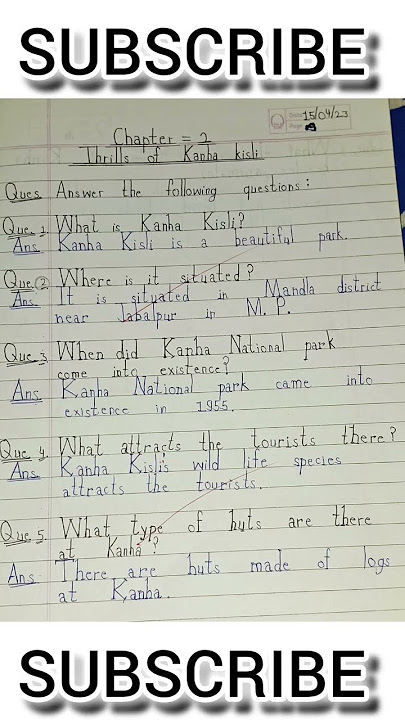 SUBSCRIBE
15/04/23
Chapter = 2
Thrills of Kanha kisli
Ques Answer the following questions:
Que. 1 What is Kanha Kisli?
Ans Kanha Kisli is a beautiful park.
Que. 2 Where is it situated?
Ans. It is situated in Mandla district
near Jabalpur in M. P.
Que. 3 When did Kanha National park
come into existence?
Ans Kanha National park came into
existence in 1955.
Que 4. What attracts the tourists there?
Ans Kanha Kisli's wild life species
attracts the tourists.
Que 5. What type of huts are there
at Kanha?
Ans There are huts made of logs
at Kanha.
SUBSCRIBE